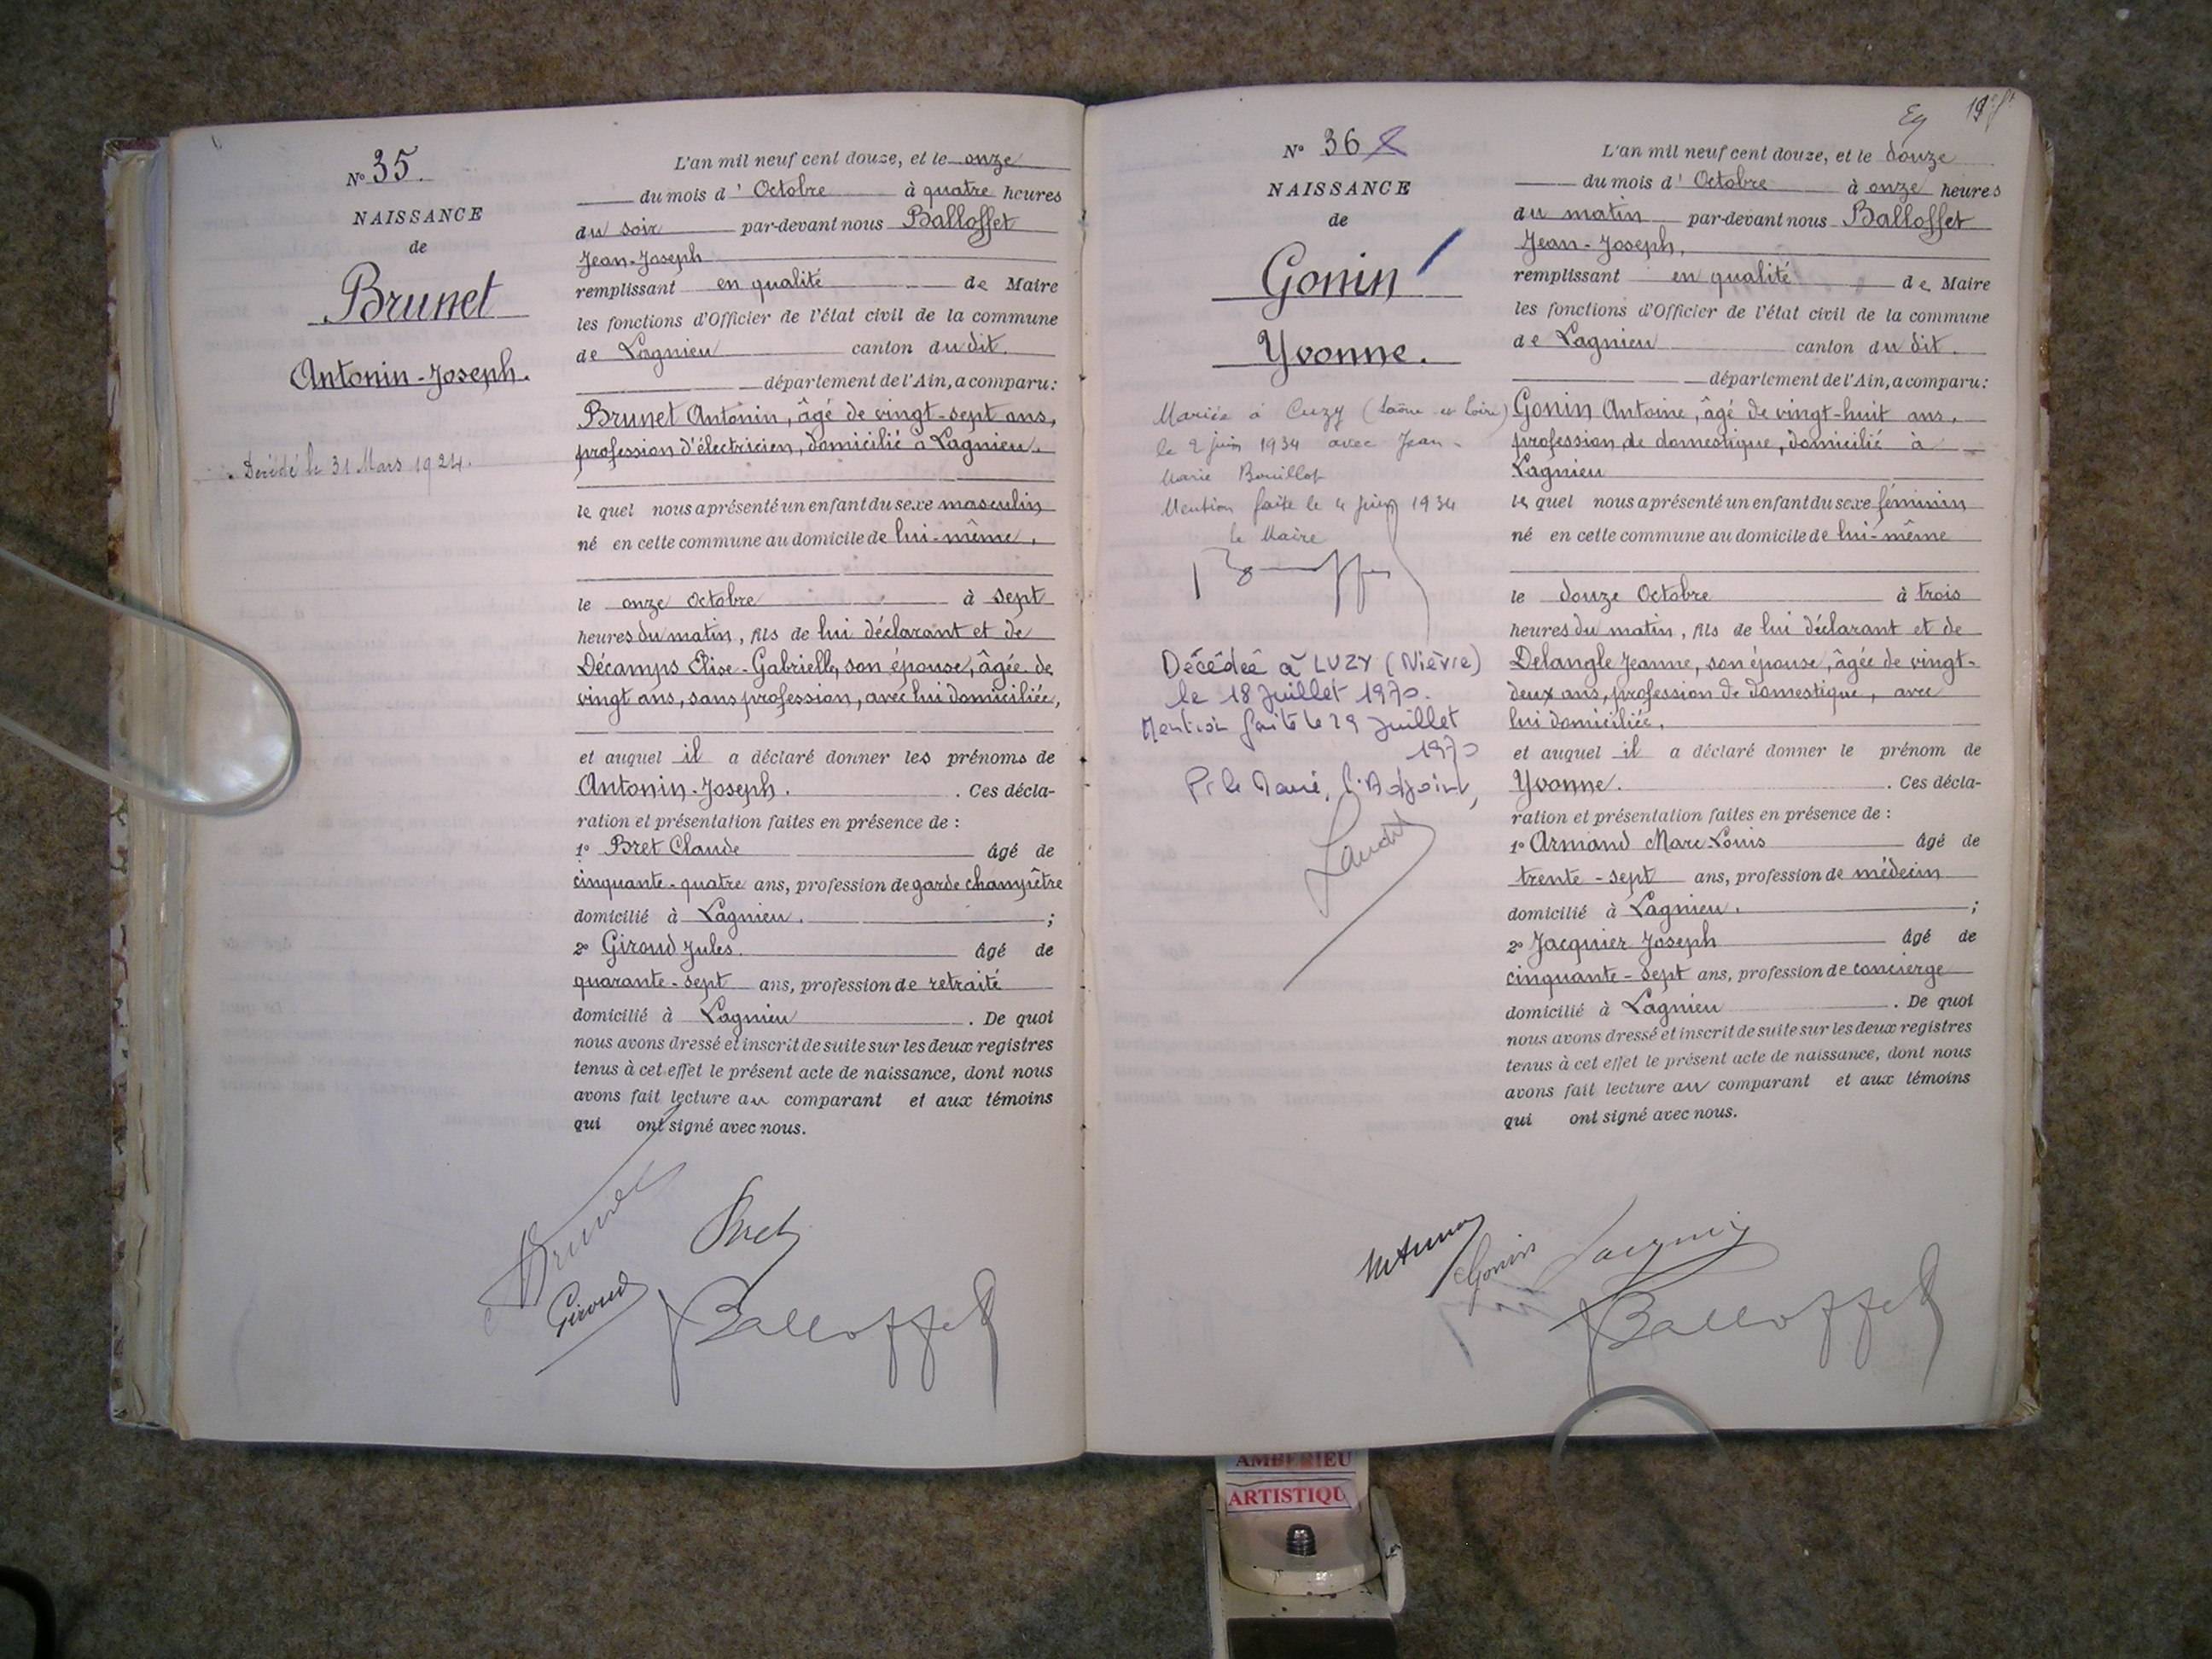 N° 35.
NAISSANCE
de
Brunet
Antonin-Joseph.
Décédé le 31 Mars 1924.
L'an mil neuf cent douze, et le onze
du mois d' Octobre à quatre heures
du soir par-devant nous Balloffet
Jean-Joseph
remplissant en qualité de Maire
les fonctions d'Officier de l'état civil de la commune
de Lagnieu canton du dit.
département de l'Ain, a comparu:
Brunet Antonin, âgé de vingt-sept ans,
profession d'électricien, domicilié à Lagnieu.
lequel nous a présenté un enfant du sexe masculin
né en cette commune au domicile de lui-même,
le onze Octobre à sept
heures du matin, fils de lui déclarant et de
Décamps Elise-Gabrielle, son épouse, âgée de
vingt ans, sans profession, avec lui domiciliée,
et auquel il a déclaré donner les prénoms de
Antonin-Joseph. . Ces décla-
ration et présentation faites en présence de :
1° Bret Claude âgé de
cinquante-quatre ans, profession de garde champêtre
domicilié à Lagnieu. ;
2° Giroud Jules. âgé de
quarante-sept ans, profession de retraité
domicilié à Lagnieu . De quoi
nous avons dressé et inscrit de suite sur les deux registres
tenus à cet effet le présent acte de naissance, dont nous
avons fait lecture au comparant et aux témoins
qui ont signé avec nous.
Brunet Bret
Giroud Balloffet
N° 36
NAISSANCE
de
Gonin
Yvonne.
Mariée à Cuzy (Saône et Loire)
le 2 juin 1934 avec Jean-
Marie Bouillot
Mention faite le 4 juin 1934
le Maire
Décédée à LUZY (Nièvre)
le 18 Juillet 1970.
Mention faite le 29 Juillet
1970
Pr le Maire, l'Adjoint,
L'an mil neuf cent douze, et le douze
du mois d' Octobre à onze heures
du matin par-devant nous Balloffet
Jean-Joseph,
remplissant en qualité de Maire
les fonctions d'Officier de l'état civil de la commune
de Lagnieu canton du dit.
département de l'Ain, a comparu:
Gonin Antoine, âgé de vingt-huit ans,
profession de domestique, domicilié à
Lagnieu
lequel nous a présenté un enfant du sexe féminin
né en cette commune au domicile de lui-même
le douze Octobre à trois
heures du matin, fils de lui déclarant et de
Delangle Jeanne, son épouse, âgée de vingt-
deux ans, profession de domestique, avec
lui domiciliée,
et auquel il a déclaré donner le prénom de
Yvonne. . Ces décla-
ration et présentation faites en présence de :
1° Armand Marc-Louis âgé de
trente-sept ans, profession de médecin
domicilié à Lagnieu. ;
2° Jacquier Joseph âgé de
cinquante-sept ans, profession de concierge
domicilié à Lagnieu . De quoi
nous avons dressé et inscrit de suite sur les deux registres
tenus à cet effet le présent acte de naissance, dont nous
avons fait lecture au comparant et aux témoins
qui ont signé avec nous.
Gonin Jacquier
Balloffet
AMBERIEU
ARTISTIQU